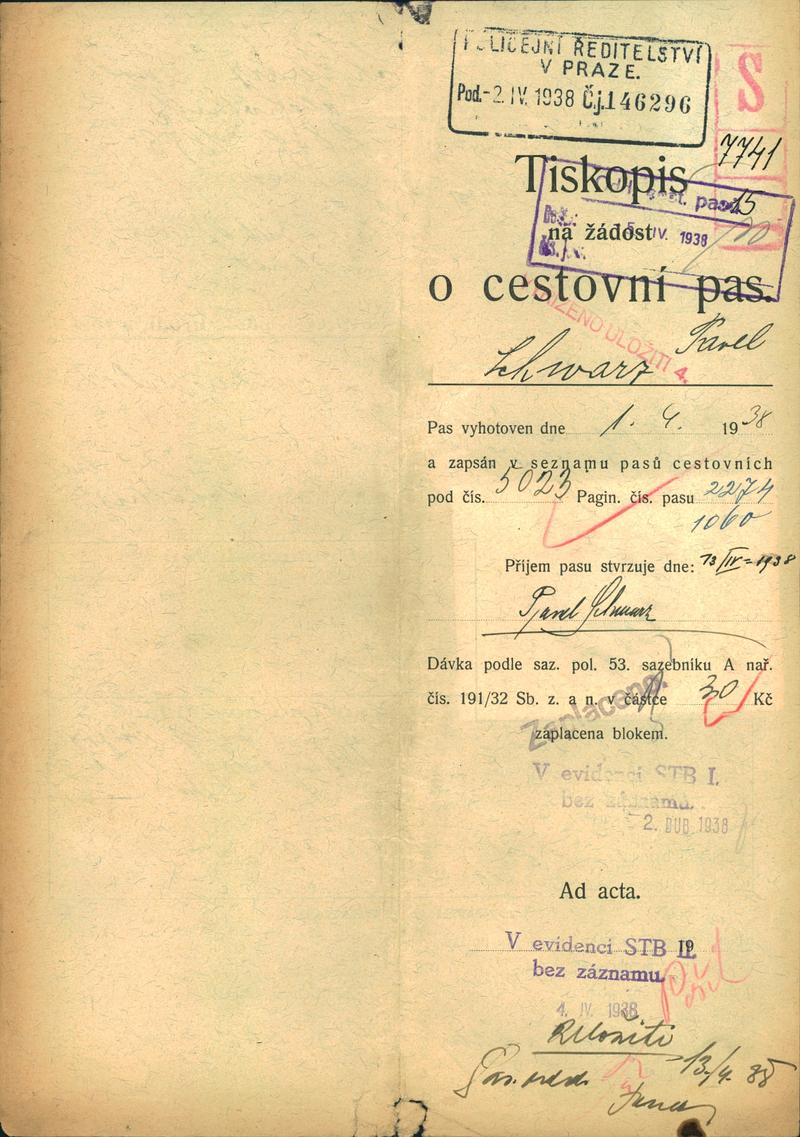 POLICEJNÍ ŘEDITELSTVÍ
V PRAZE.
Pod. -2. IV. 1938 Č.j. 146296
S
7741
Tiskopis
pasů 15
na žádost
5 IV. 1938
o cestovní pas.
ULOŽITI 4.
Pavel
Schwarz
Pas vyhotoven dne 1. 4. 1938
a zapsán v seznamu pasů cestovních
pod čís. 5023 Pagin. čís. pasu 2274
1060
Příjem pasu stvrzuje dne: 13/IV = 1938
Pavel Schwarz
Dávka podle saz. pol. 53. sazebníku A nař.
čís. 191/32 Sb. z. a n. v částce 30 Kč
Zaplaceno.
zaplacena blokem.
V evidenci STB I.
bez záznamu.
2. DUB 1938
Ad acta.
V evidenci STB II.
bez záznamu.
4. IV. 1938
Uložiti
13./4. 38